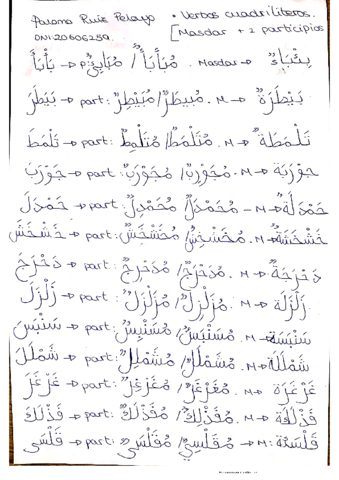 Paloma Ruiz Pelayo
DNI: 20606259.
• Verbos cuadrilíteros.
[Masdar + 2 participios
بَأْبَأَ → p: مُبَأْبِئٌ / مُبَأْبَأٌ. Masdar →
بَيْطَرَ → part: مُبَيْطِرٌ / مُبَيْطَرٌ. M → بَيْطَرَةٌ
تَلْمَظَ → part: M → تَلْمَظَةٌ
جَوْرَبَ → part: مُجَوْرَبٌ / مُجَوْرِبٌ. M → جَوْرَبَةٌ
حَمْدَلَ → part: مُحَمْدِلٌ / مُحَمْدَلٌ. M → حَمْدَلَةٌ
خَشْخَشَ → part: مُخَشْخَشٌ / مُخَشْخِشٌ. M → خَشْخَشَةٌ
دَحْرَجَ → part: مُدَحْرِجٌ / مُدَحْرَجٌ. M → دَحْرَجَةٌ
زَلْزَلَ → part: مُزَلْزَلٌ / مُزَلْزِلٌ. M → زَلْزَلَة
سَنْبَسَ → part: مُسَنْبِسٌ / مُسَنْبَسٌ. M → سَنْبَسَة
شَمْلَلَ → part: مُشَمْلِلٌ / مُشَمْلَلٌ. M → شَمْلَلَة
غَرْغَرَ → part: مُغَرْغِرٌ / مُغَرْغَرٌ. M → غَرْغَرَة
فَذْلَكَ → part: مُفَذْلَكٌ / مُفَذْلِكٌ. M → فَذْلَكَة
قَلْسَى → part: مُقَلْسَى / مُقَلْسِيٌ → M: